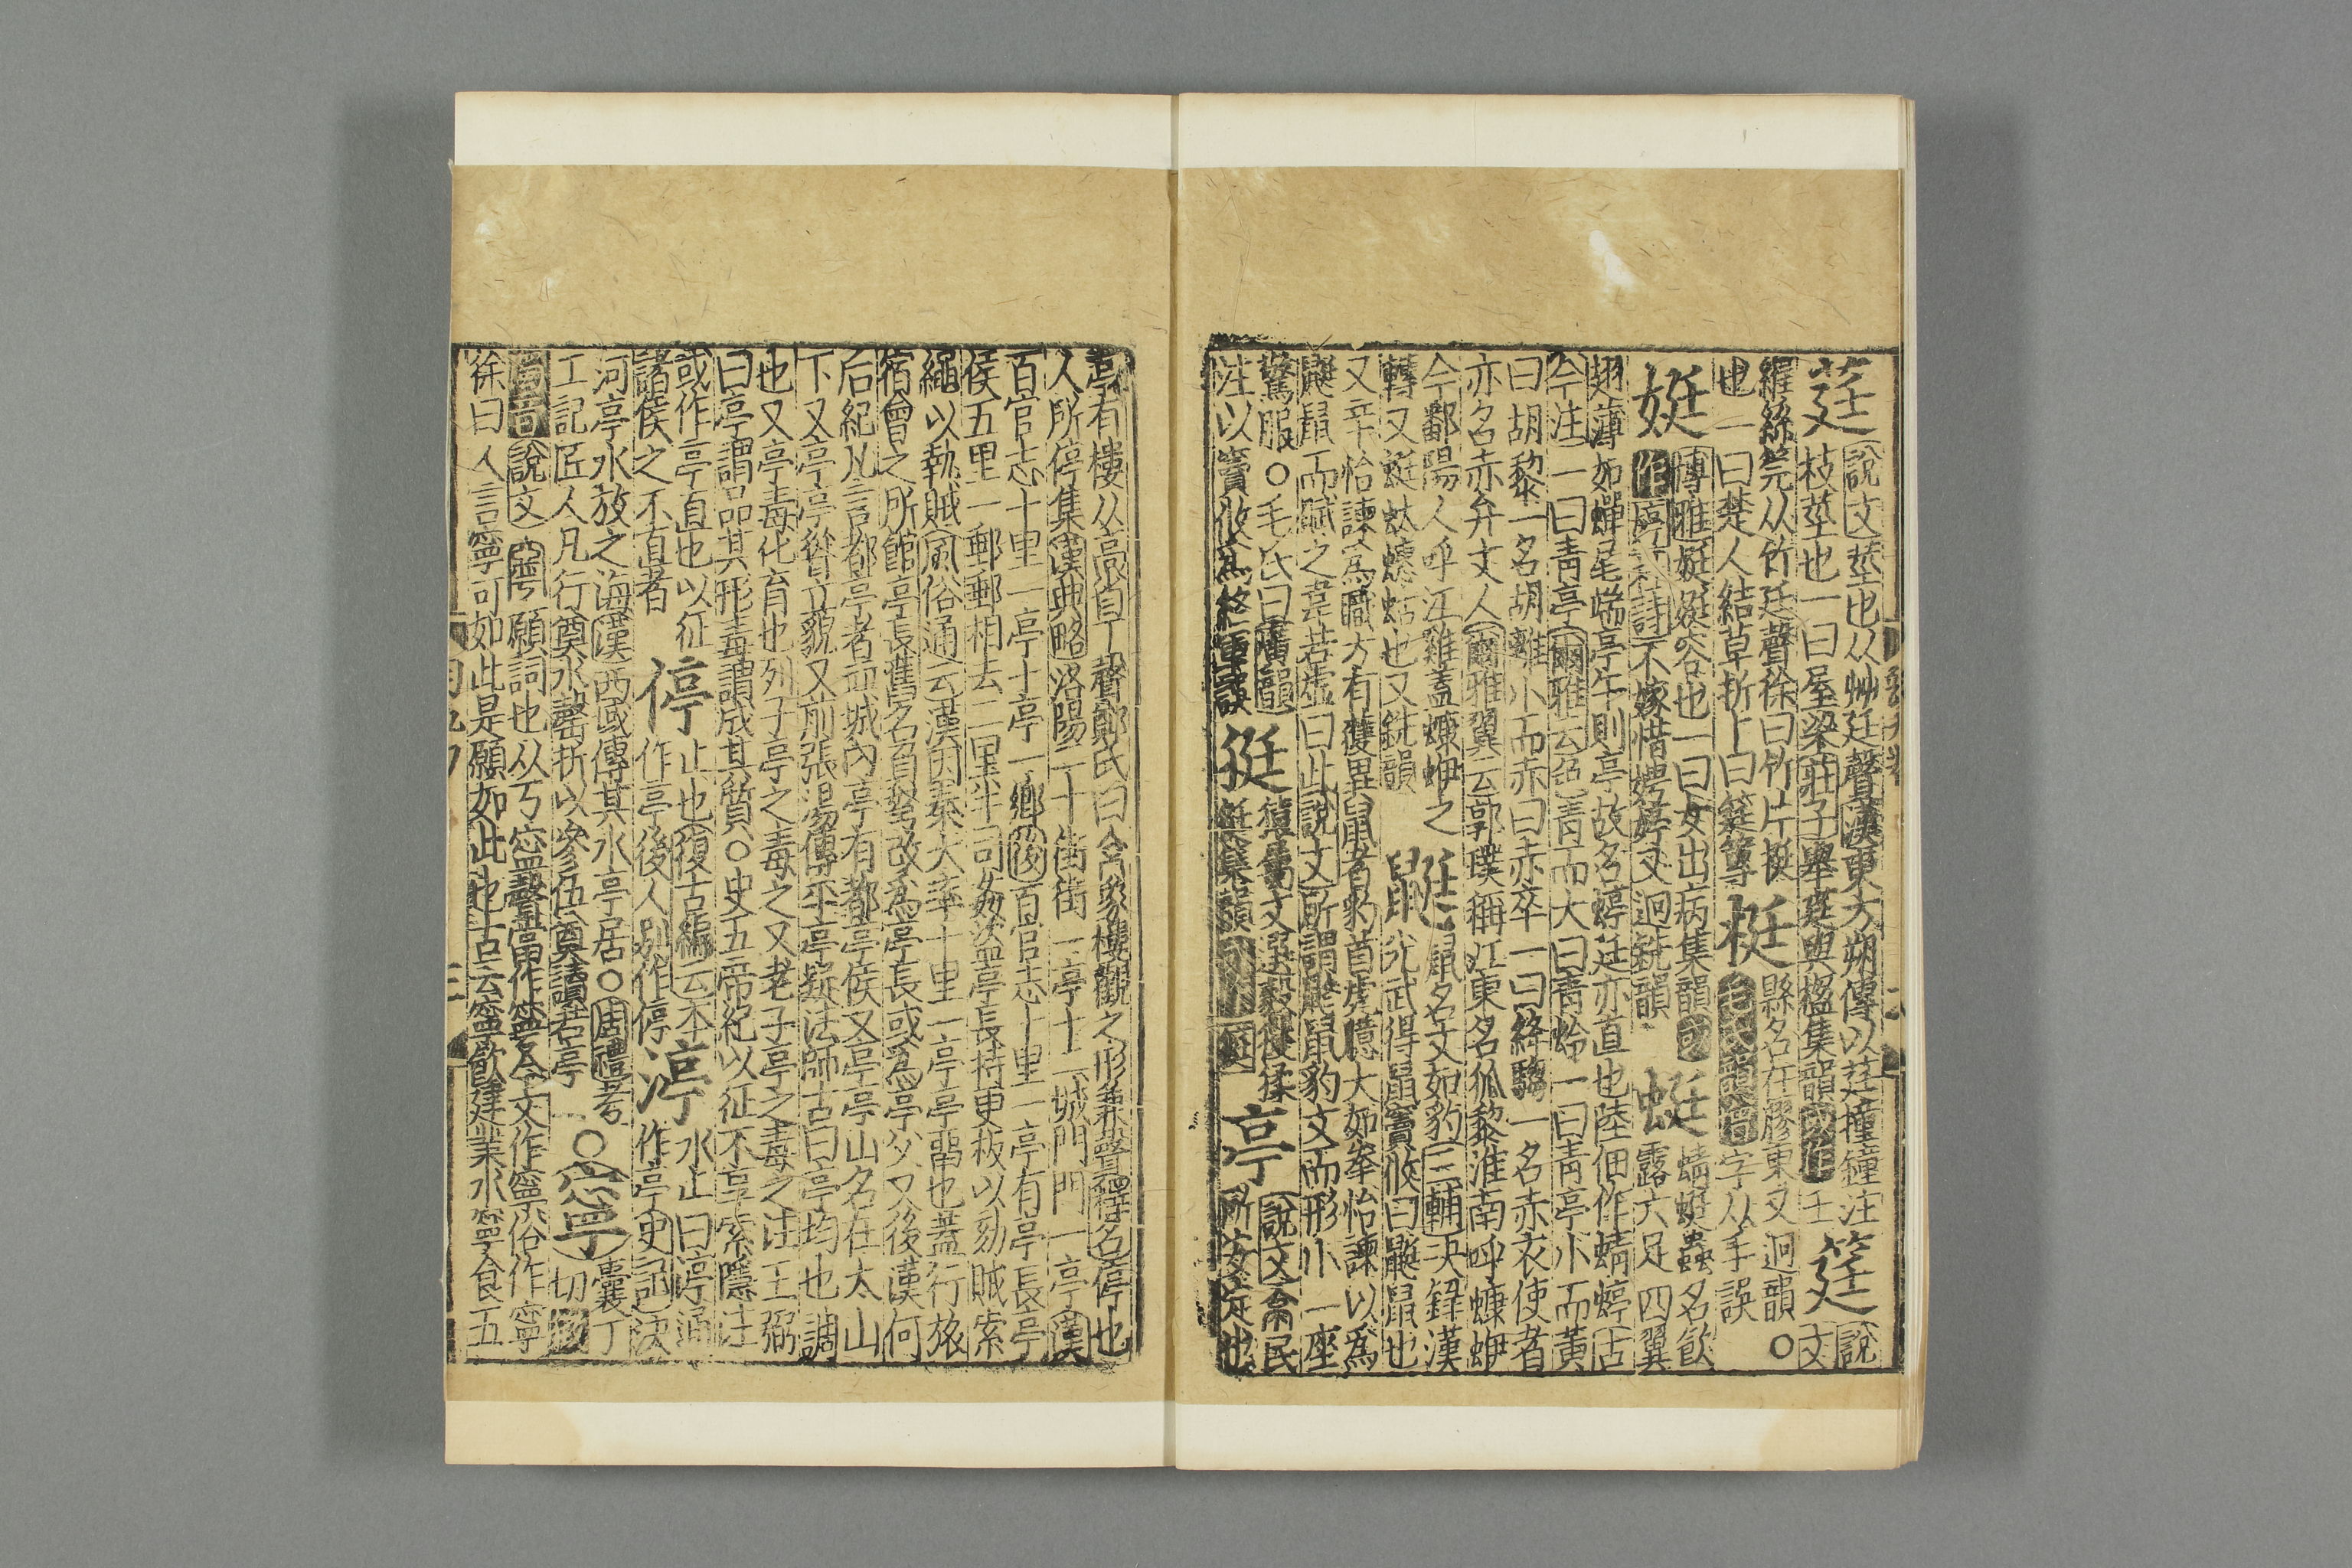 莛說文莖也从艸廷聲漢東方朔傳以莛撞鐘注筳說
枝莖也一曰屋梁莊子舉莛與楹集韻或作 文
羅絲筦从竹廷聲徐曰竹片挺梃縣名在膠東又迥韻○
也一曰楚人結草折卜曰筳篿毛氏韻增字从手誤
娗博雅娗娗容也一曰女出病集韻或蜓蜻蜓蟲名飲
作婷杜詩不嫁惜娉婷又迥銑韻露六足四翼
翅薄如蟬尾端亭午則亭故名蜓廷亦直也陸佃作蜻蝏古
今注一曰青亭爾雅云色青而大曰青蛉一曰青亭小而黃
曰胡黎一名胡離小而赤曰赤卒一曰絳騶一名赤衣使者
亦名赤弁丈人爾雅翼云郭璞稱江東名狐黎淮南呼蠊蛜
今鄱陽人呼江雞蓋蠊蛜之鼮鼠名文如豹三輔決錄漢
轉又蜓蚞螇蛄也又銑韻光武得鼠竇攸曰鼮鼠也
又辛怡諫為職方有獲異鼠者豹首虎臆大如拳怡諫以為
鼮鼠而賦之韋若虛曰此說文所謂鼨鼠豹文而形小一座
驚服○毛氏曰廣韻
注以竇攸為終軍誤亭說文亭民所安定也
亭有樓从高省丁聲鄭氏曰 樓觀之形兼聲釋名停也
人所停集漢典略洛陽二十街街一亭十二城門門一亭漢
百官志十里一亭十亭一鄉後百官志十里一亭有亭長亭
侯五里一郵郵相去二里半司姦盜亭長持更板以劾賊索
繩以執賊風俗通云漢因秦大率十里一亭亭留也蓋行旅
宿會之所館亭長舊名負弩改為亭長或為亭父又後漢何
后紀凡言都亭者並城內亭有都亭侯又亭亭山名在太山
下又亭亭聳立貌又前張湯傳平亭疑法師古曰亭均也調
也又亭毒化育也列子亭之毒之又老子亭之毒之注王弼
曰亭謂品其形毒謂成其質○史五帝紀以征不享索隱注
或作亭亭直也以征停止也復古編云本
諸侯之不直者作亭後人別作停渟水止曰渟通作亭史記決
河亭水放之海漢西域傳其水亭居○周禮考
工記匠人凡行奠水磬折以參伍奠讀若亭○寧囊丁切
說文寧願詞也从丂寍聲當作寧今文作寧俗作寕
徐曰人言寧可如此是願如此也古云寧飲建業水寧食五